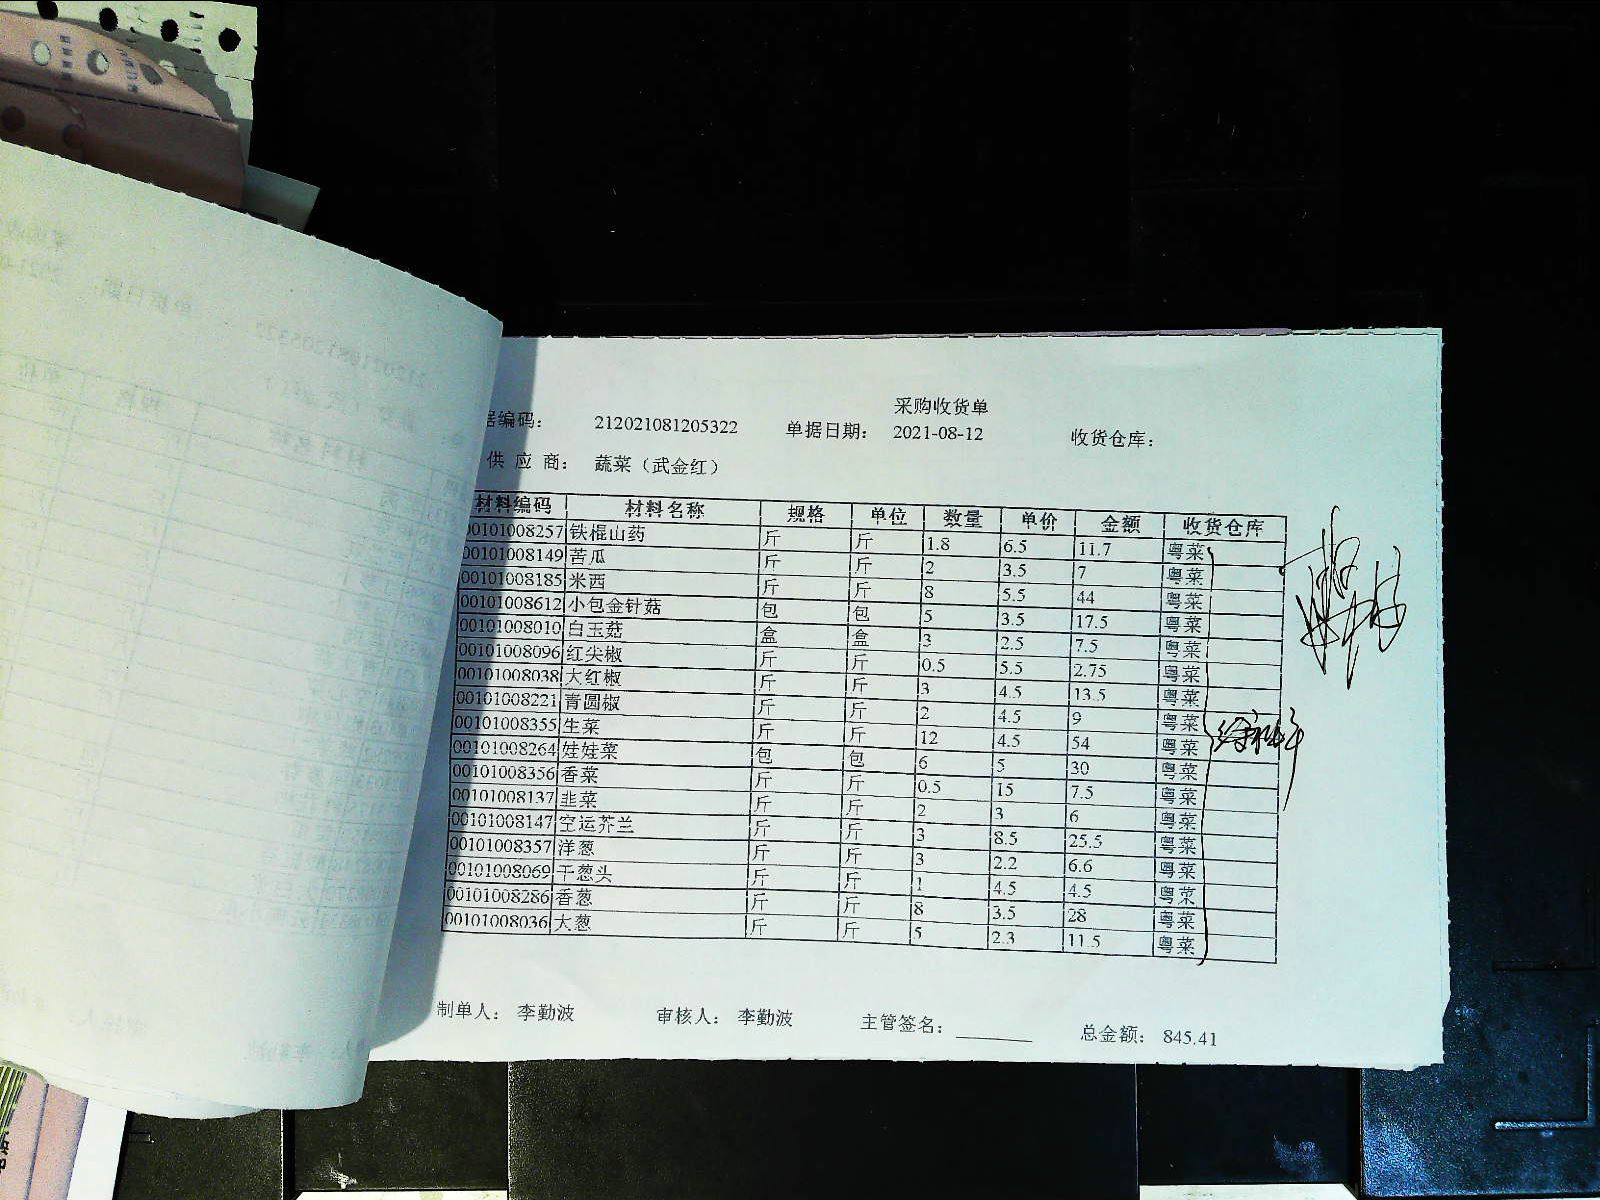 采购收货单
据编码： 212021081205322 单据日期： 2021-08-12 收货仓库：
供 应 商： 蔬菜（武金红）
材料编码 材料名称 规格 单位 数量 单价 金额 收货仓库
00101008257 铁棍山药 斤 斤 1.8 6.5 11.7 粤菜
00101008149 苦瓜 斤 斤 2 3.5 7 粤菜
00101008185 米西 斤 斤 8 5.5 44 粤菜
00101008612 小包金针菇 包 包 5 3.5 17.5 粤菜
00101008010 白玉菇 盒 盒 3 2.5 7.5 粤菜
00101008096 红尖椒 斤 斤 0.5 5.5 2.75 粤菜
00101008038 大红椒 斤 斤 3 4.5 13.5 粤菜
00101008221 青圆椒 斤 斤 2 4.5 9 粤菜
00101008355 生菜 斤 斤 12 4.5 54 粤菜
00101008264 娃娃菜 包 包 6 5 30 粤菜
00101008356 香菜 斤 斤 0.5 15 7.5 粤菜
00101008137 韭菜 斤 斤 2 3 6 粤菜
00101008147 空运芥兰 斤 斤 3 8.5 25.5 粤菜
00101008357 洋葱 斤 斤 3 2.2 6.6 粤菜
00101008069 干葱头 斤 斤 1 4.5 4.5 粤菜
00101008286 香葱 斤 斤 8 3.5 28 粤菜
00101008036 大葱 斤 斤 5 2.3 11.5 粤菜
制单人： 李勤波 审核人： 李勤波 主管签名： 总金额： 845.41